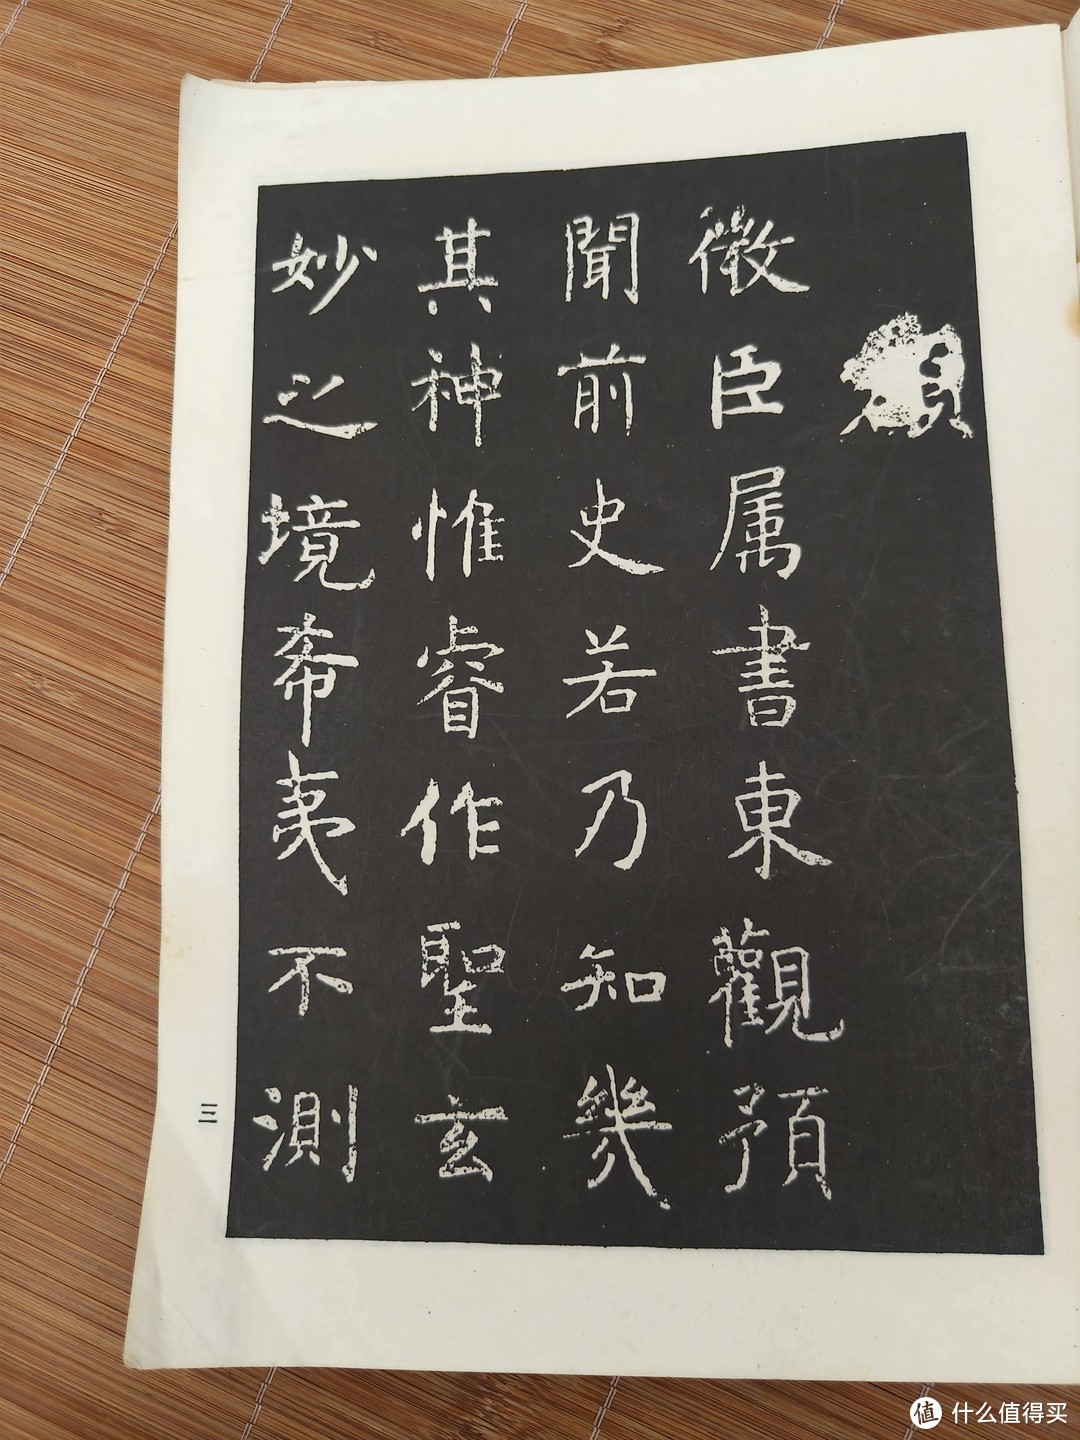 微臣属書東觀預
聞前史若乃知幾
其神惟睿作聖玄
妙之境希夷不測
三
值 什么值得买